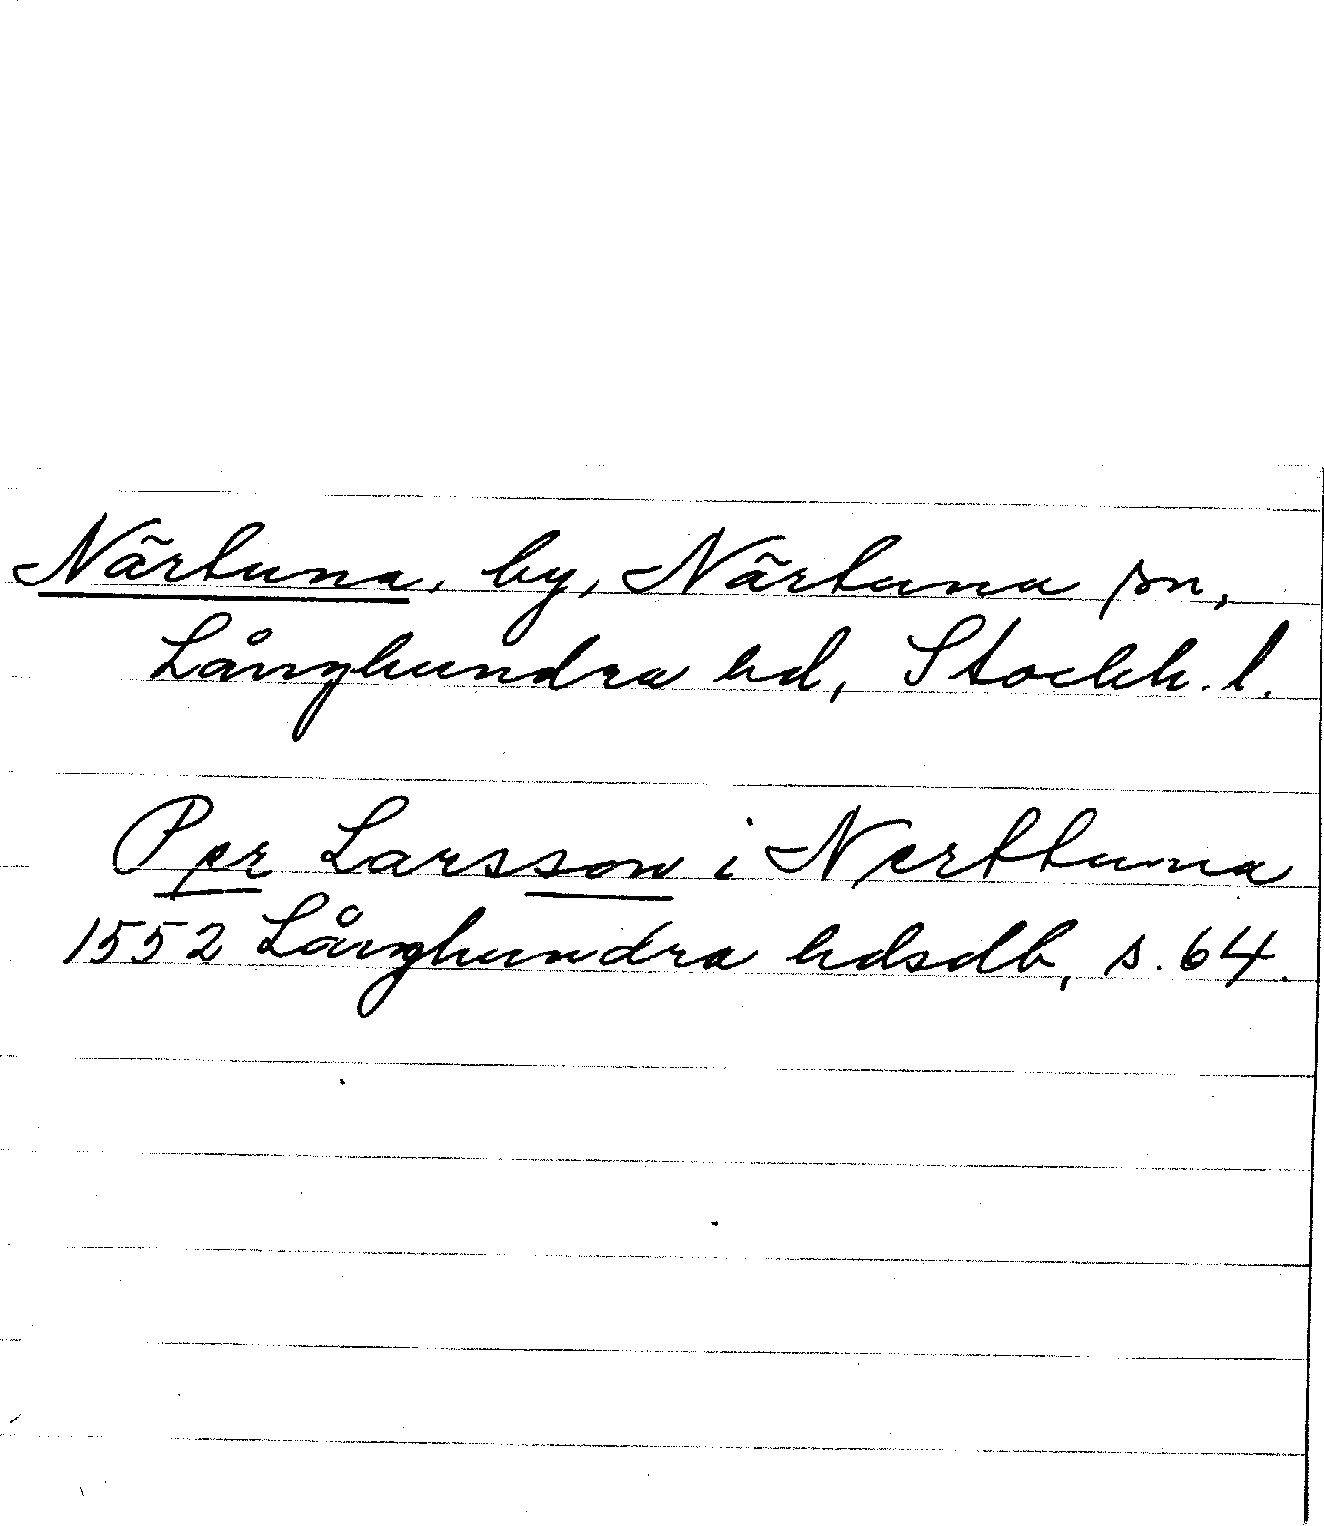 Närtuna, by, Närtuna sn,
Långhundra hd, Stockh. l.
Per Larsson i Nerttuna
1552 Långhundra hdsdb, s. 64.